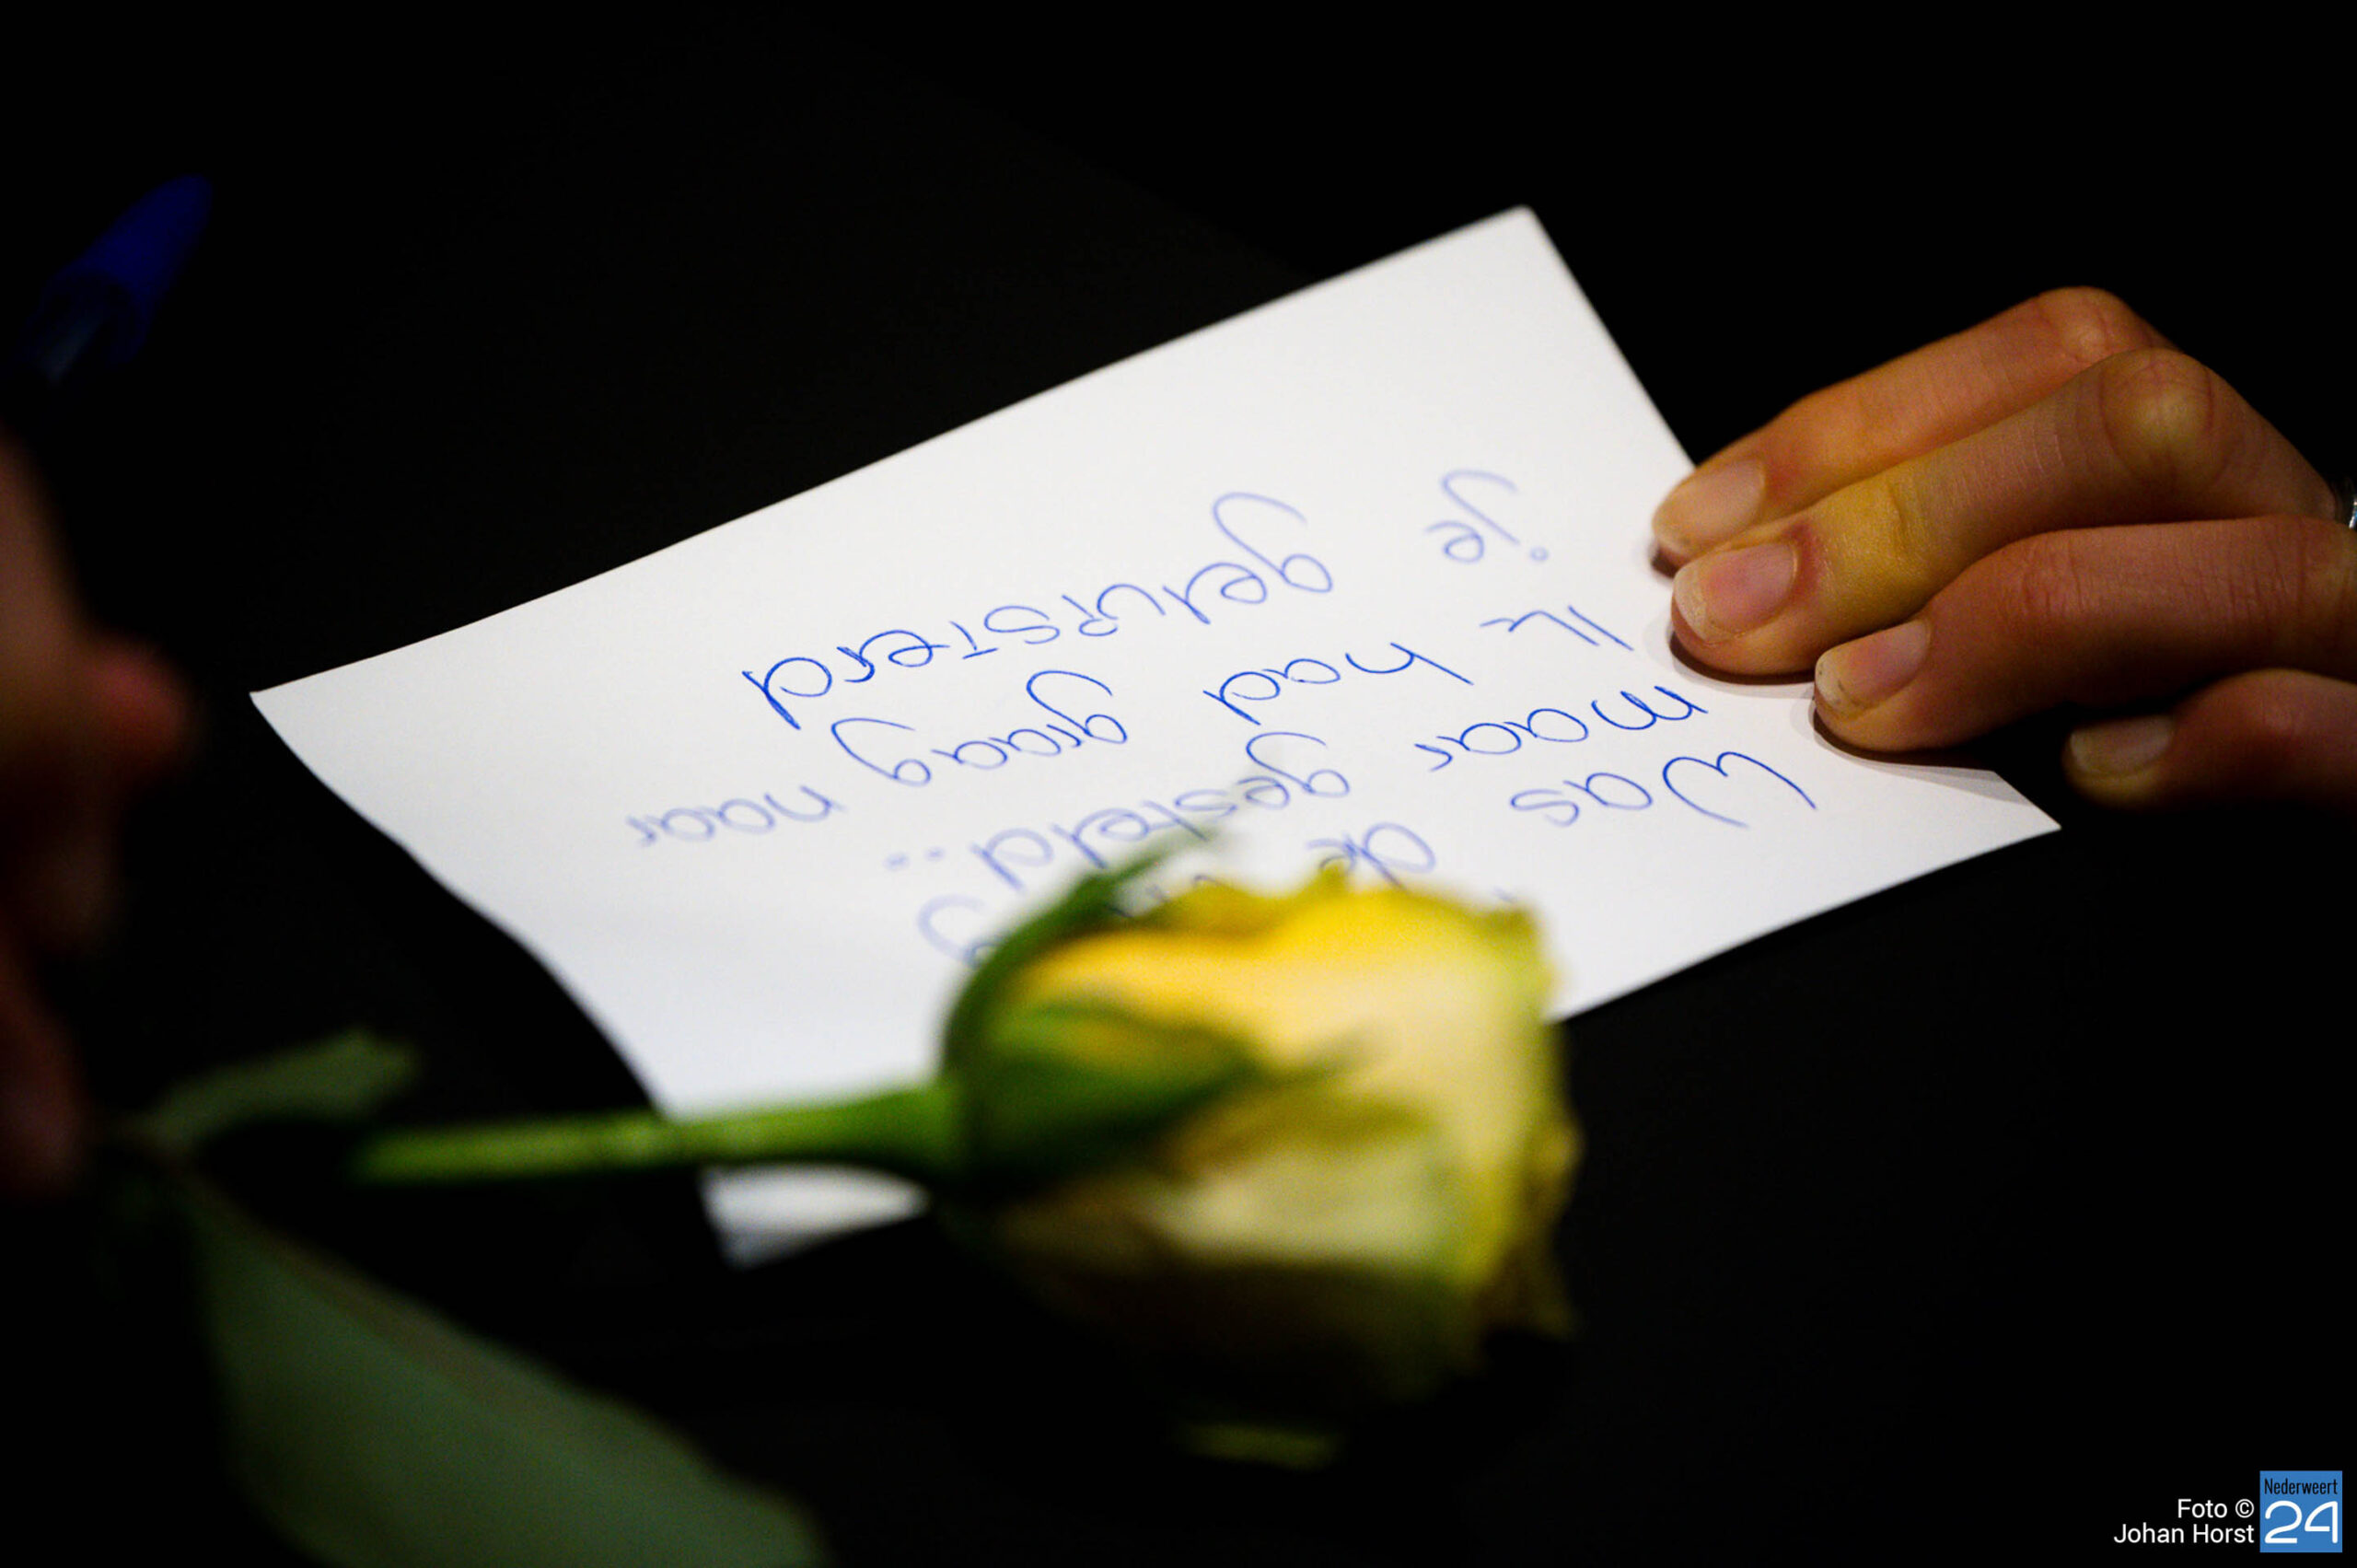 Was de
maar gesteld..
Ik had graag naar
je geluisterd
Foto ©
Johan Horst
Nederweert
24